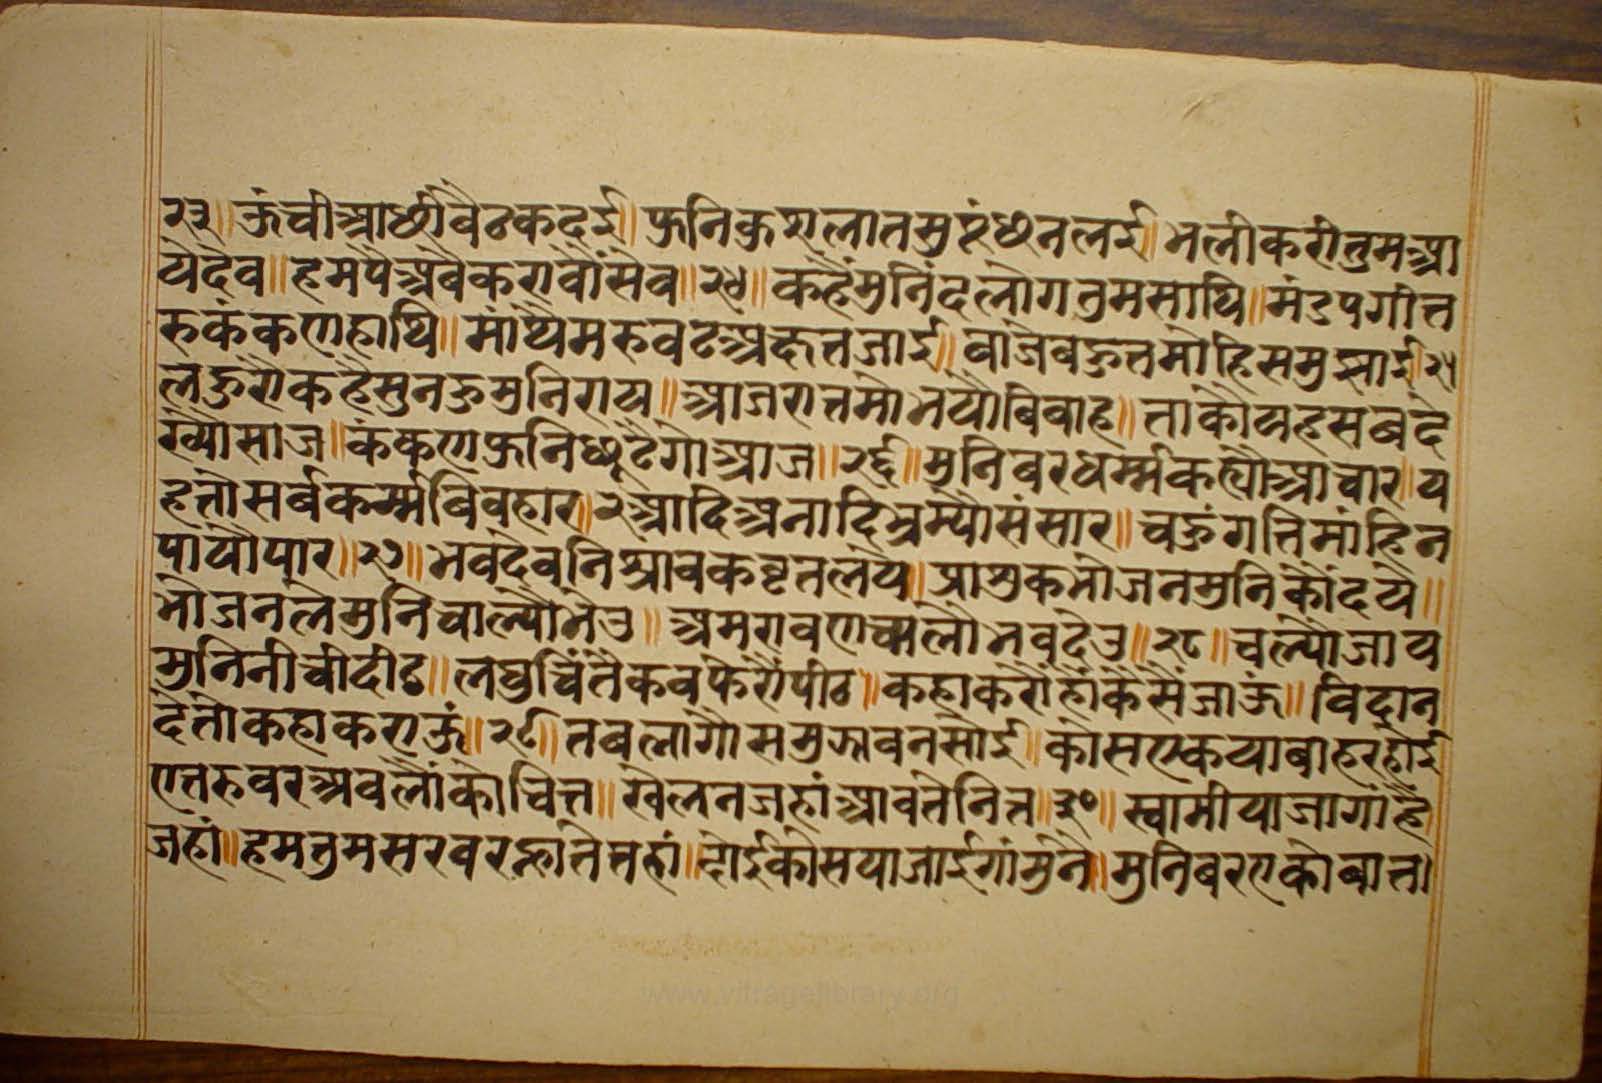 २३॥ ऊंची आछी बैठक दई॥ फुनि कुशलात मुष्टं छन लई॥ भली करी तुम आ
ये देव॥ हम पै अबै करावौ सेव॥२४॥ कहै मुनिंद लोग तुम साथि॥ मंडप गीत
रु कंकण हाथि॥ माथै मरुवट अद्भुत जाई॥ बाजै बहुत मोहि समुझाई॥२५
लहुरौ कहै सुनहु मुनिराय॥ आज रात मो भयौ बिवाह॥ ताकौ यह सब दे
ख्यौ साज॥ कंकण फुनि छूटैगो आज॥२६॥ मुनिबर धर्म्म कह्यौ आचार॥ य
ह तो सर्ब कर्म्म बिवहार॥२ आदि अनादि भ्रम्यौ संसार॥ चहुं गति मांहि न
पायौ पार॥२७॥ भवदेवनि श्रावक वृत लेय॥ प्राशुक भोजन मुनि कौं देय॥
भोजन ले मुनि चाल्यौ भेउ॥ अमरावण चालौ भवदेउ॥२८॥ चल्यौ जाय
मुनि नीची दीठ॥ लघु चिंतै कब फेरौं पीठ॥ कहा करौं हौं कैसैं जाऊं॥ बिदा न
दे तो कहा कराऊं॥२९॥ तब लागौ समुझावन सोई॥ कोस एक या बाहर होई
ए तरुवर अवलौकौ चित्त॥ खेलन जहां आवते नित्त॥३०॥ स्वामी या जागां है
जहां॥ हम तुम सरवर न्हाते तहां॥ दोई कोस या जाई गां मुनै॥ मुनिबर एको बात।
www.vitragelibrary.org